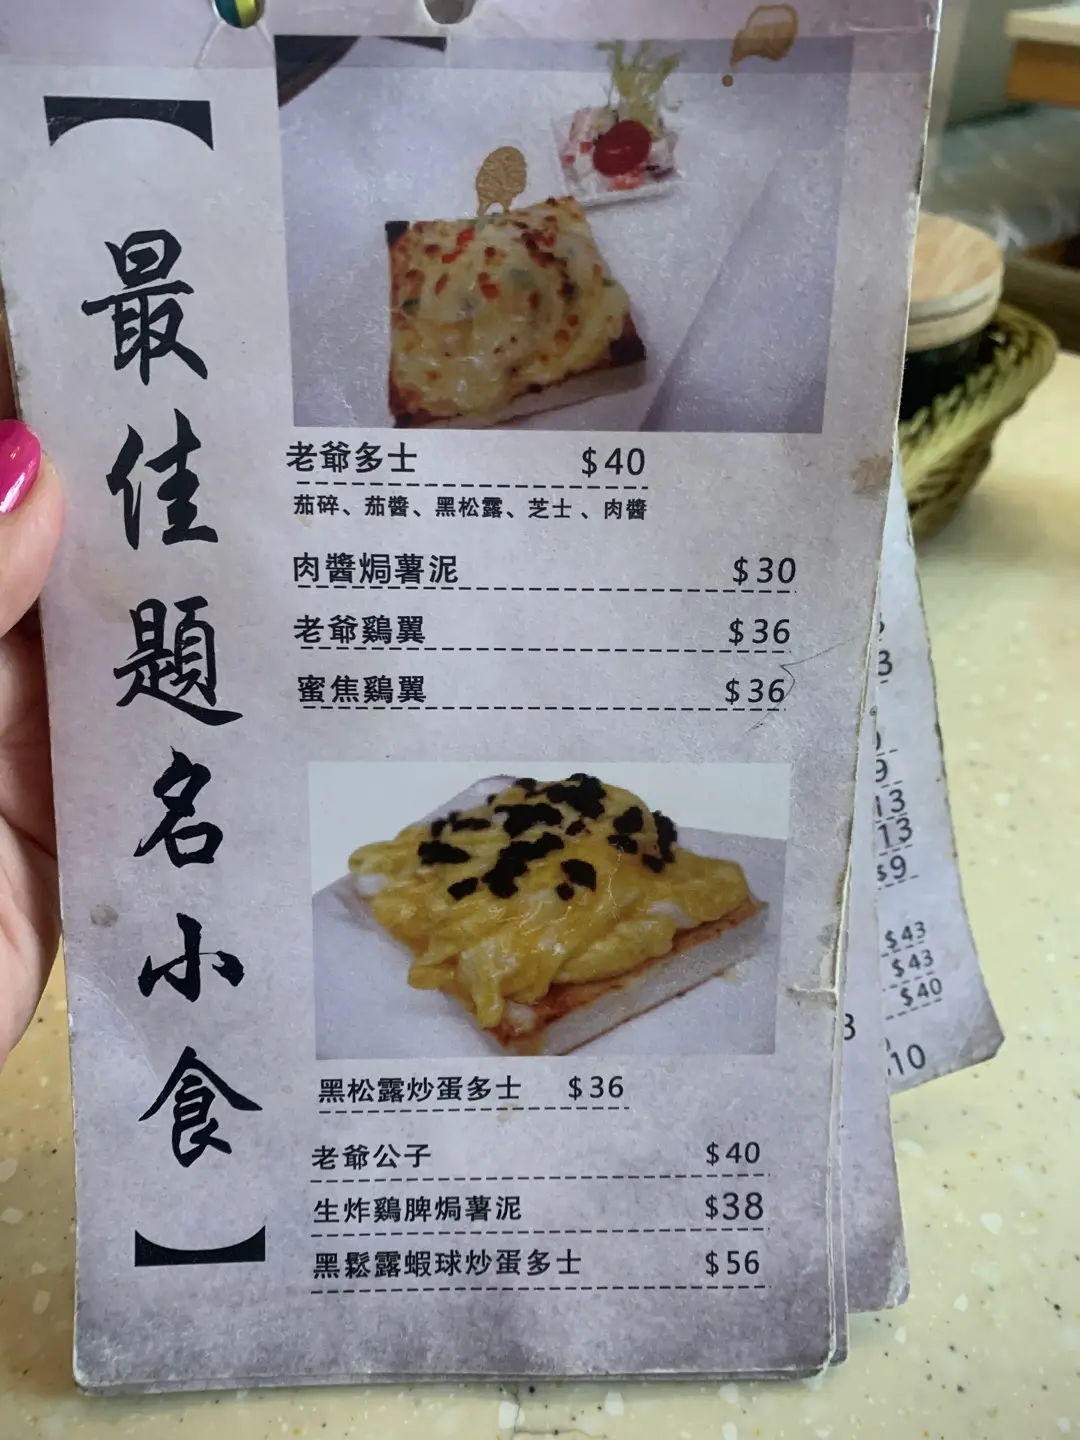 【最佳題名小食】
老爺多士 $40
茄碎、茄醬、黑松露、芝士、肉醬
肉醬焗薯泥 $30
老爺鷄翼 $36
蜜焦鷄翼 $36
黑松露炒蛋多士 $36
老爺公子 $40
生炸鷄脾焗薯泥 $38
黑鬆露蝦球炒蛋多士 $56
3
9
13
13
$9
$43
$43
$40
10